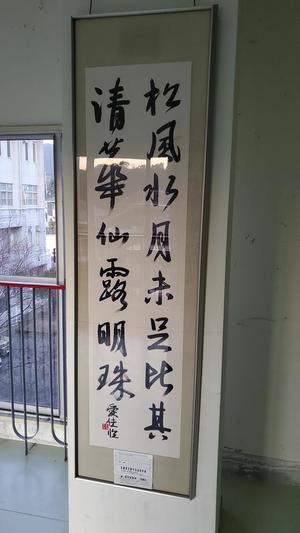 松風水月未足比其
清華仙露明珠